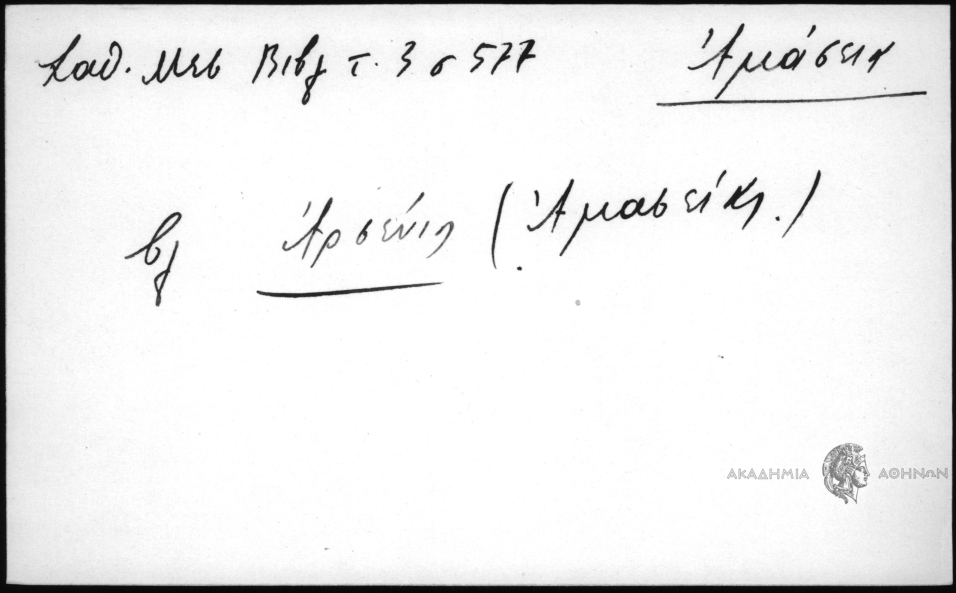 Σαθ. Μεσ Βιβλ τ. 3 σ 577
Ἀμάσεια
βλ Ἀρσένιος (Ἀμασείας.)
ΑΚΑΔΗΜΙΑ ΑΘΗΝΩΝ